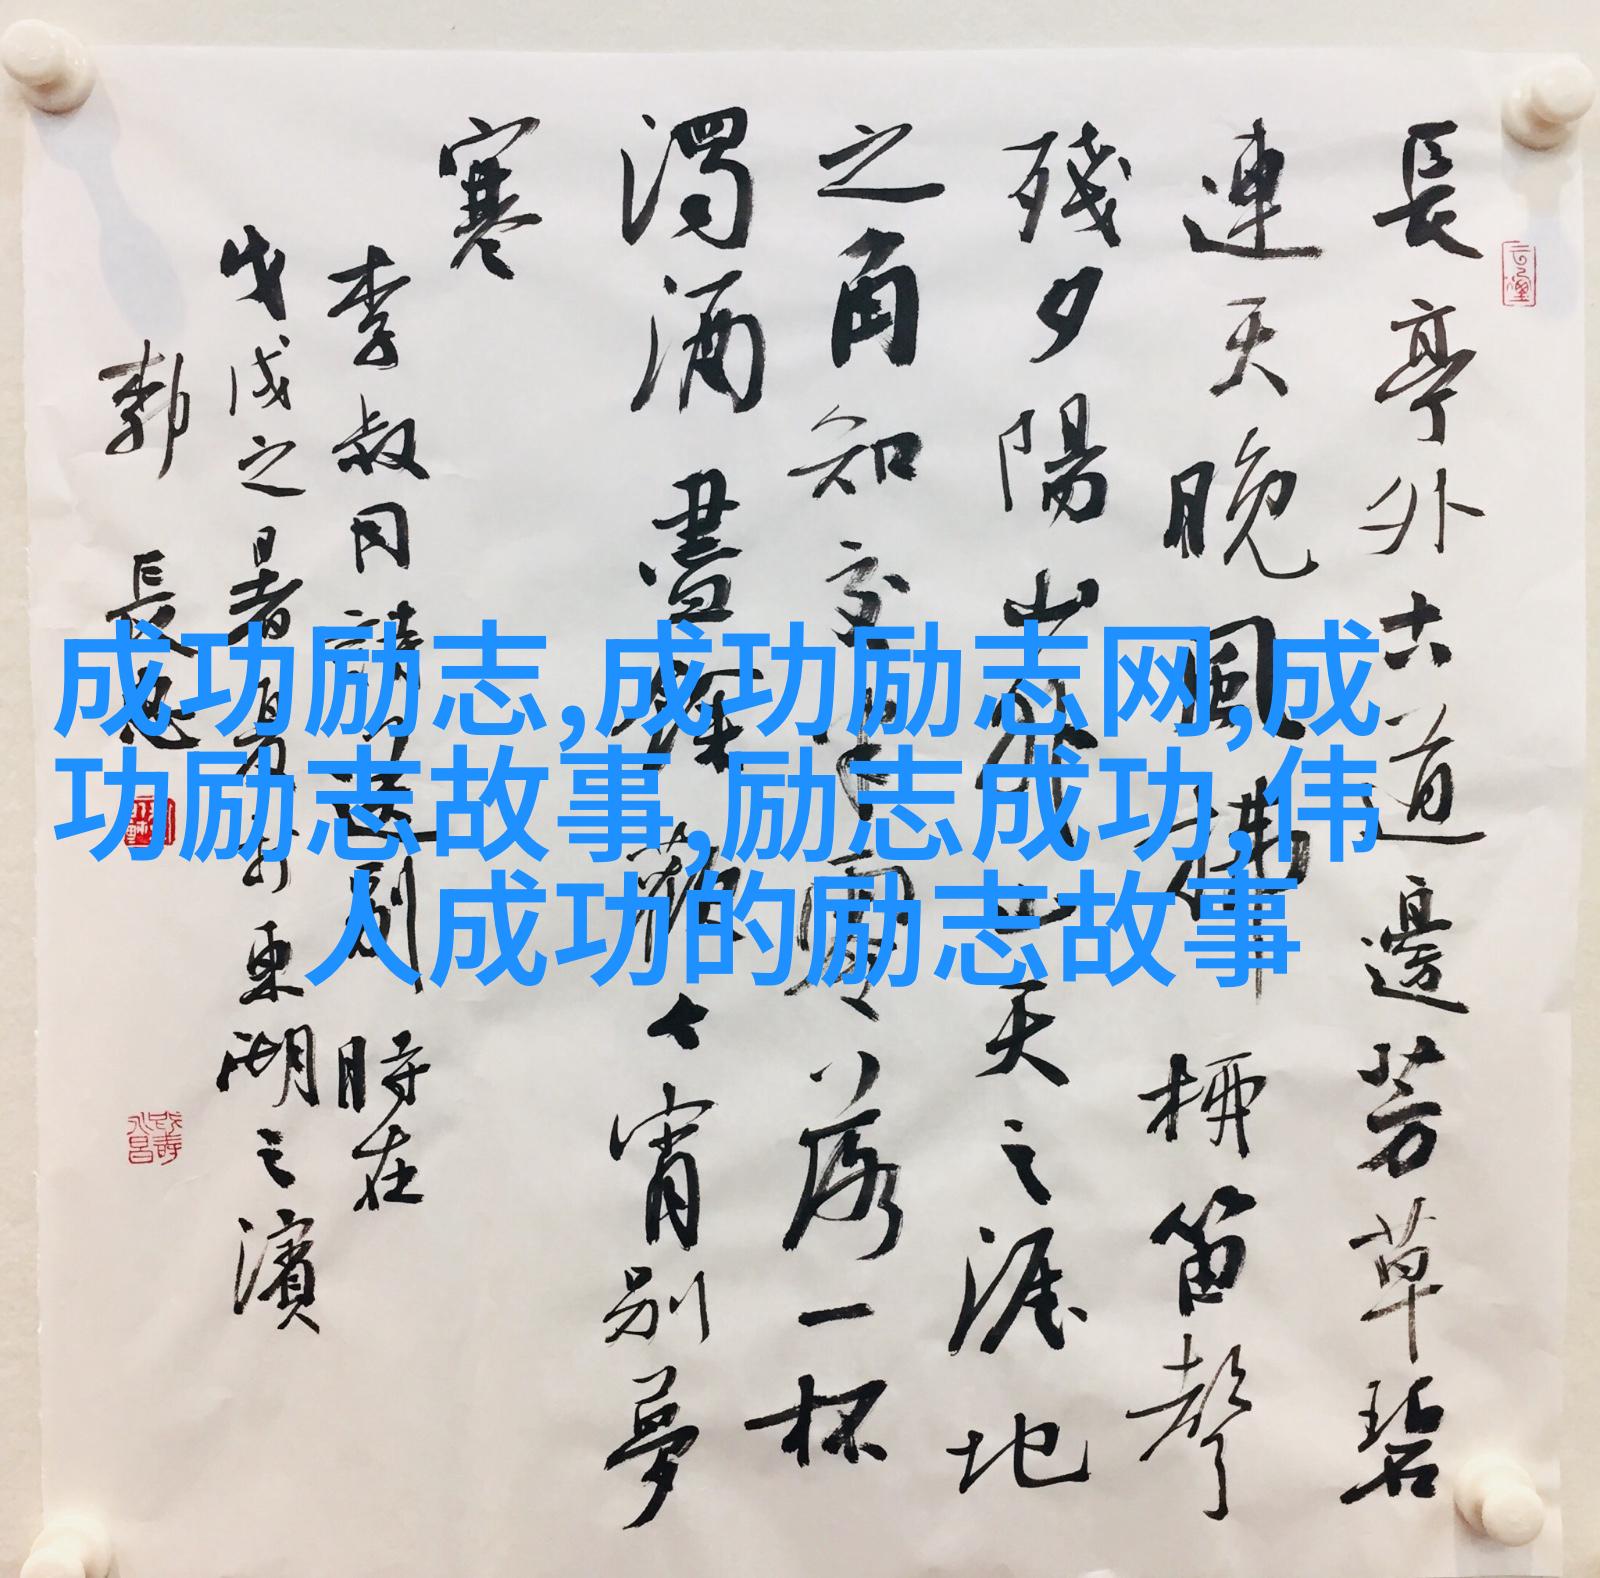 長亭外古道邊芳草碧
連天晚風拂柳笛聲
殘夕陽山外山天之涯地
之角知交半零落一杯
濁酒盡餘歡今宵别夢
寒
李叔同詩送别時在
戊戌之暑夏东湖之濱
長
成功励志,成功励志网,成
功励志故事,励志成功,伟
人成功的励志故事